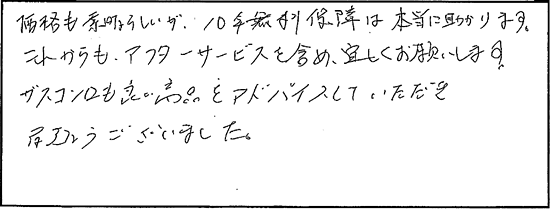 価格も素晴らしいが、10年無料保障は本当に助かります。
これからも、アフターサービスを含め、宜しくお願いします。
ガスコンロも良い商品をアドバイスしていただき
有難うございました。